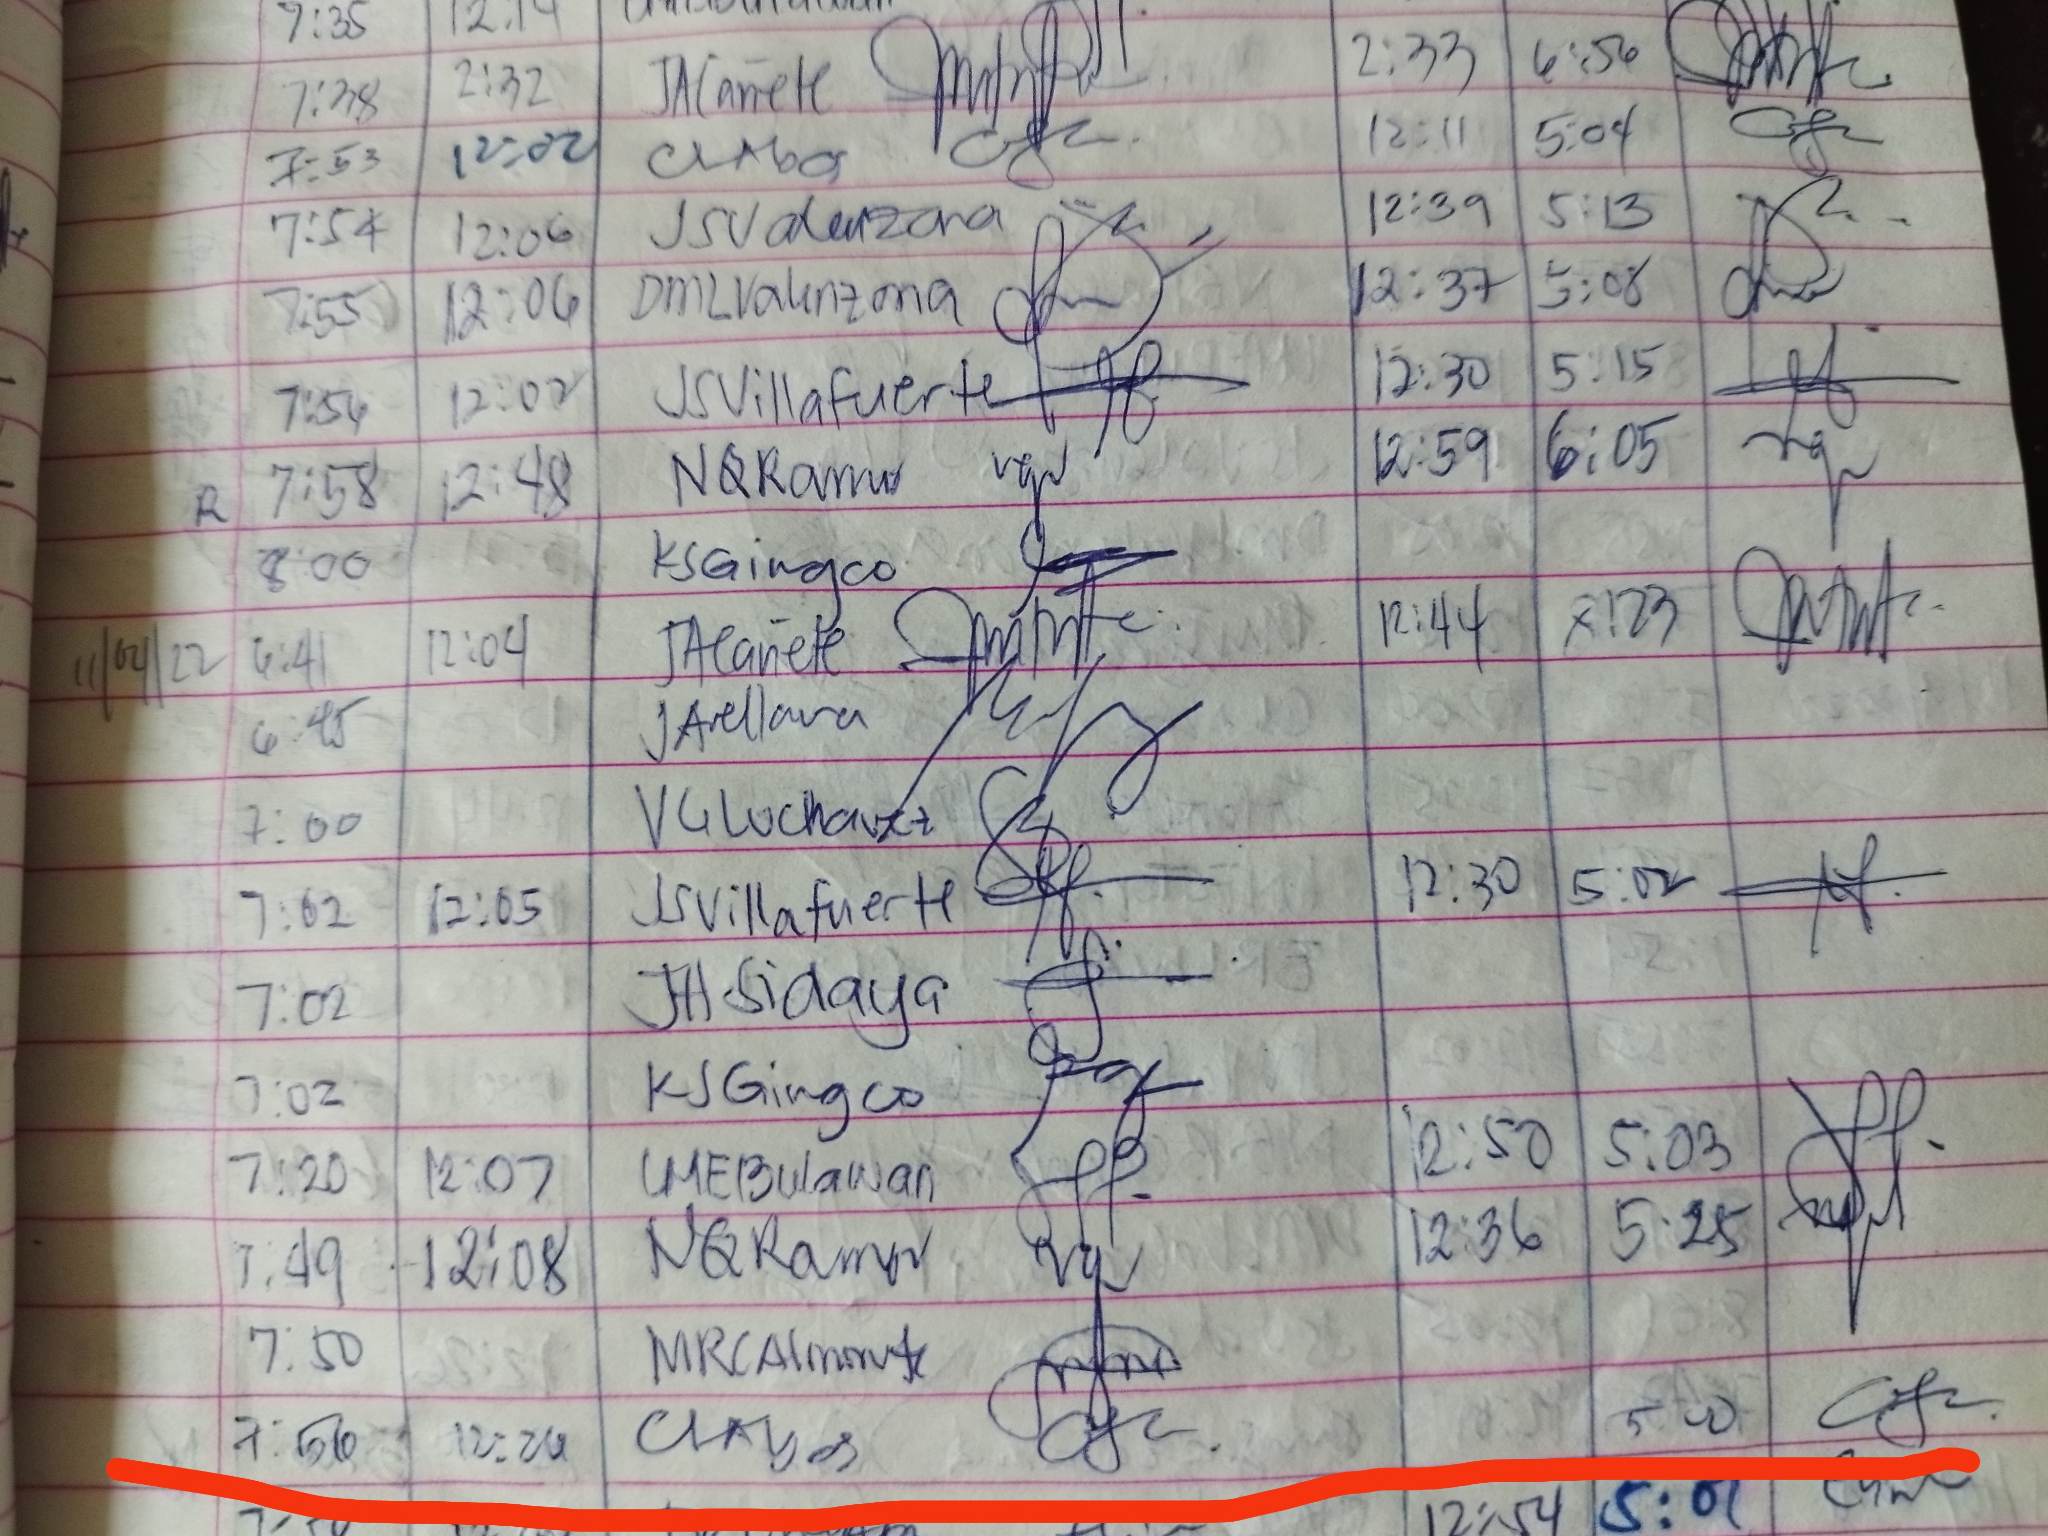 7:35 12:14
7:38 2:32 JACañete 2:33 6:56
7:53 12:02 CJAbos 12:11 5:04
7:54 12:06 JSValenzona 12:39 5:13
7:55 12:06 DMLValenzona 12:37 5:08
7:56 12:02 JSVillafuerte 12:30 5:15
R 7:58 12:48 NQRamos 12:59 6:05
8:00 KSGingco
11/04/22 6:41 12:04 JACañete 12:44
6:45 JArellana
7:00
7:02 12:05 JSVillafuerte 12:30 5:02
7:02 JHSidaya
7:02 KSGingco
7:20 12:07 LMEBulawan 12:50 5:03
7:49 12:08 NQRamos 12:36 5:25
7:50 MRCAlmonte
7:56 12:26 CJAbos
12:54 5:01